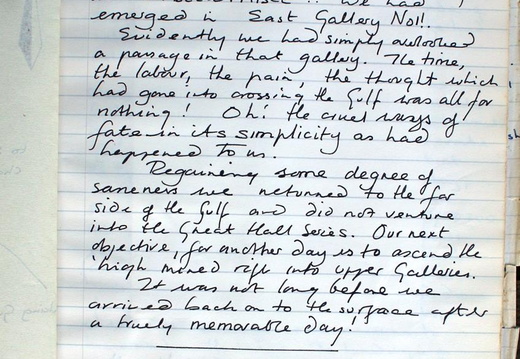 we had
emerged in East Gallery No1!.
Evidently we had simply overlooked
a passage in that gallery. The time,
the labour, the pain, the thought which
had gone into crossing the Gulf was all for
nothing! Oh! the cruel ways of
fate in its simplicity as had
happened to us.
Regaining some degree of
saneness we returned to the far
side of the Gulf and did not venture
into the Great Hall Series. Our next
objective, for another day is to ascend the
high mined rift into upper Galleries.
It was not long before we
arrived back on to the surface after
a truely memorable day!